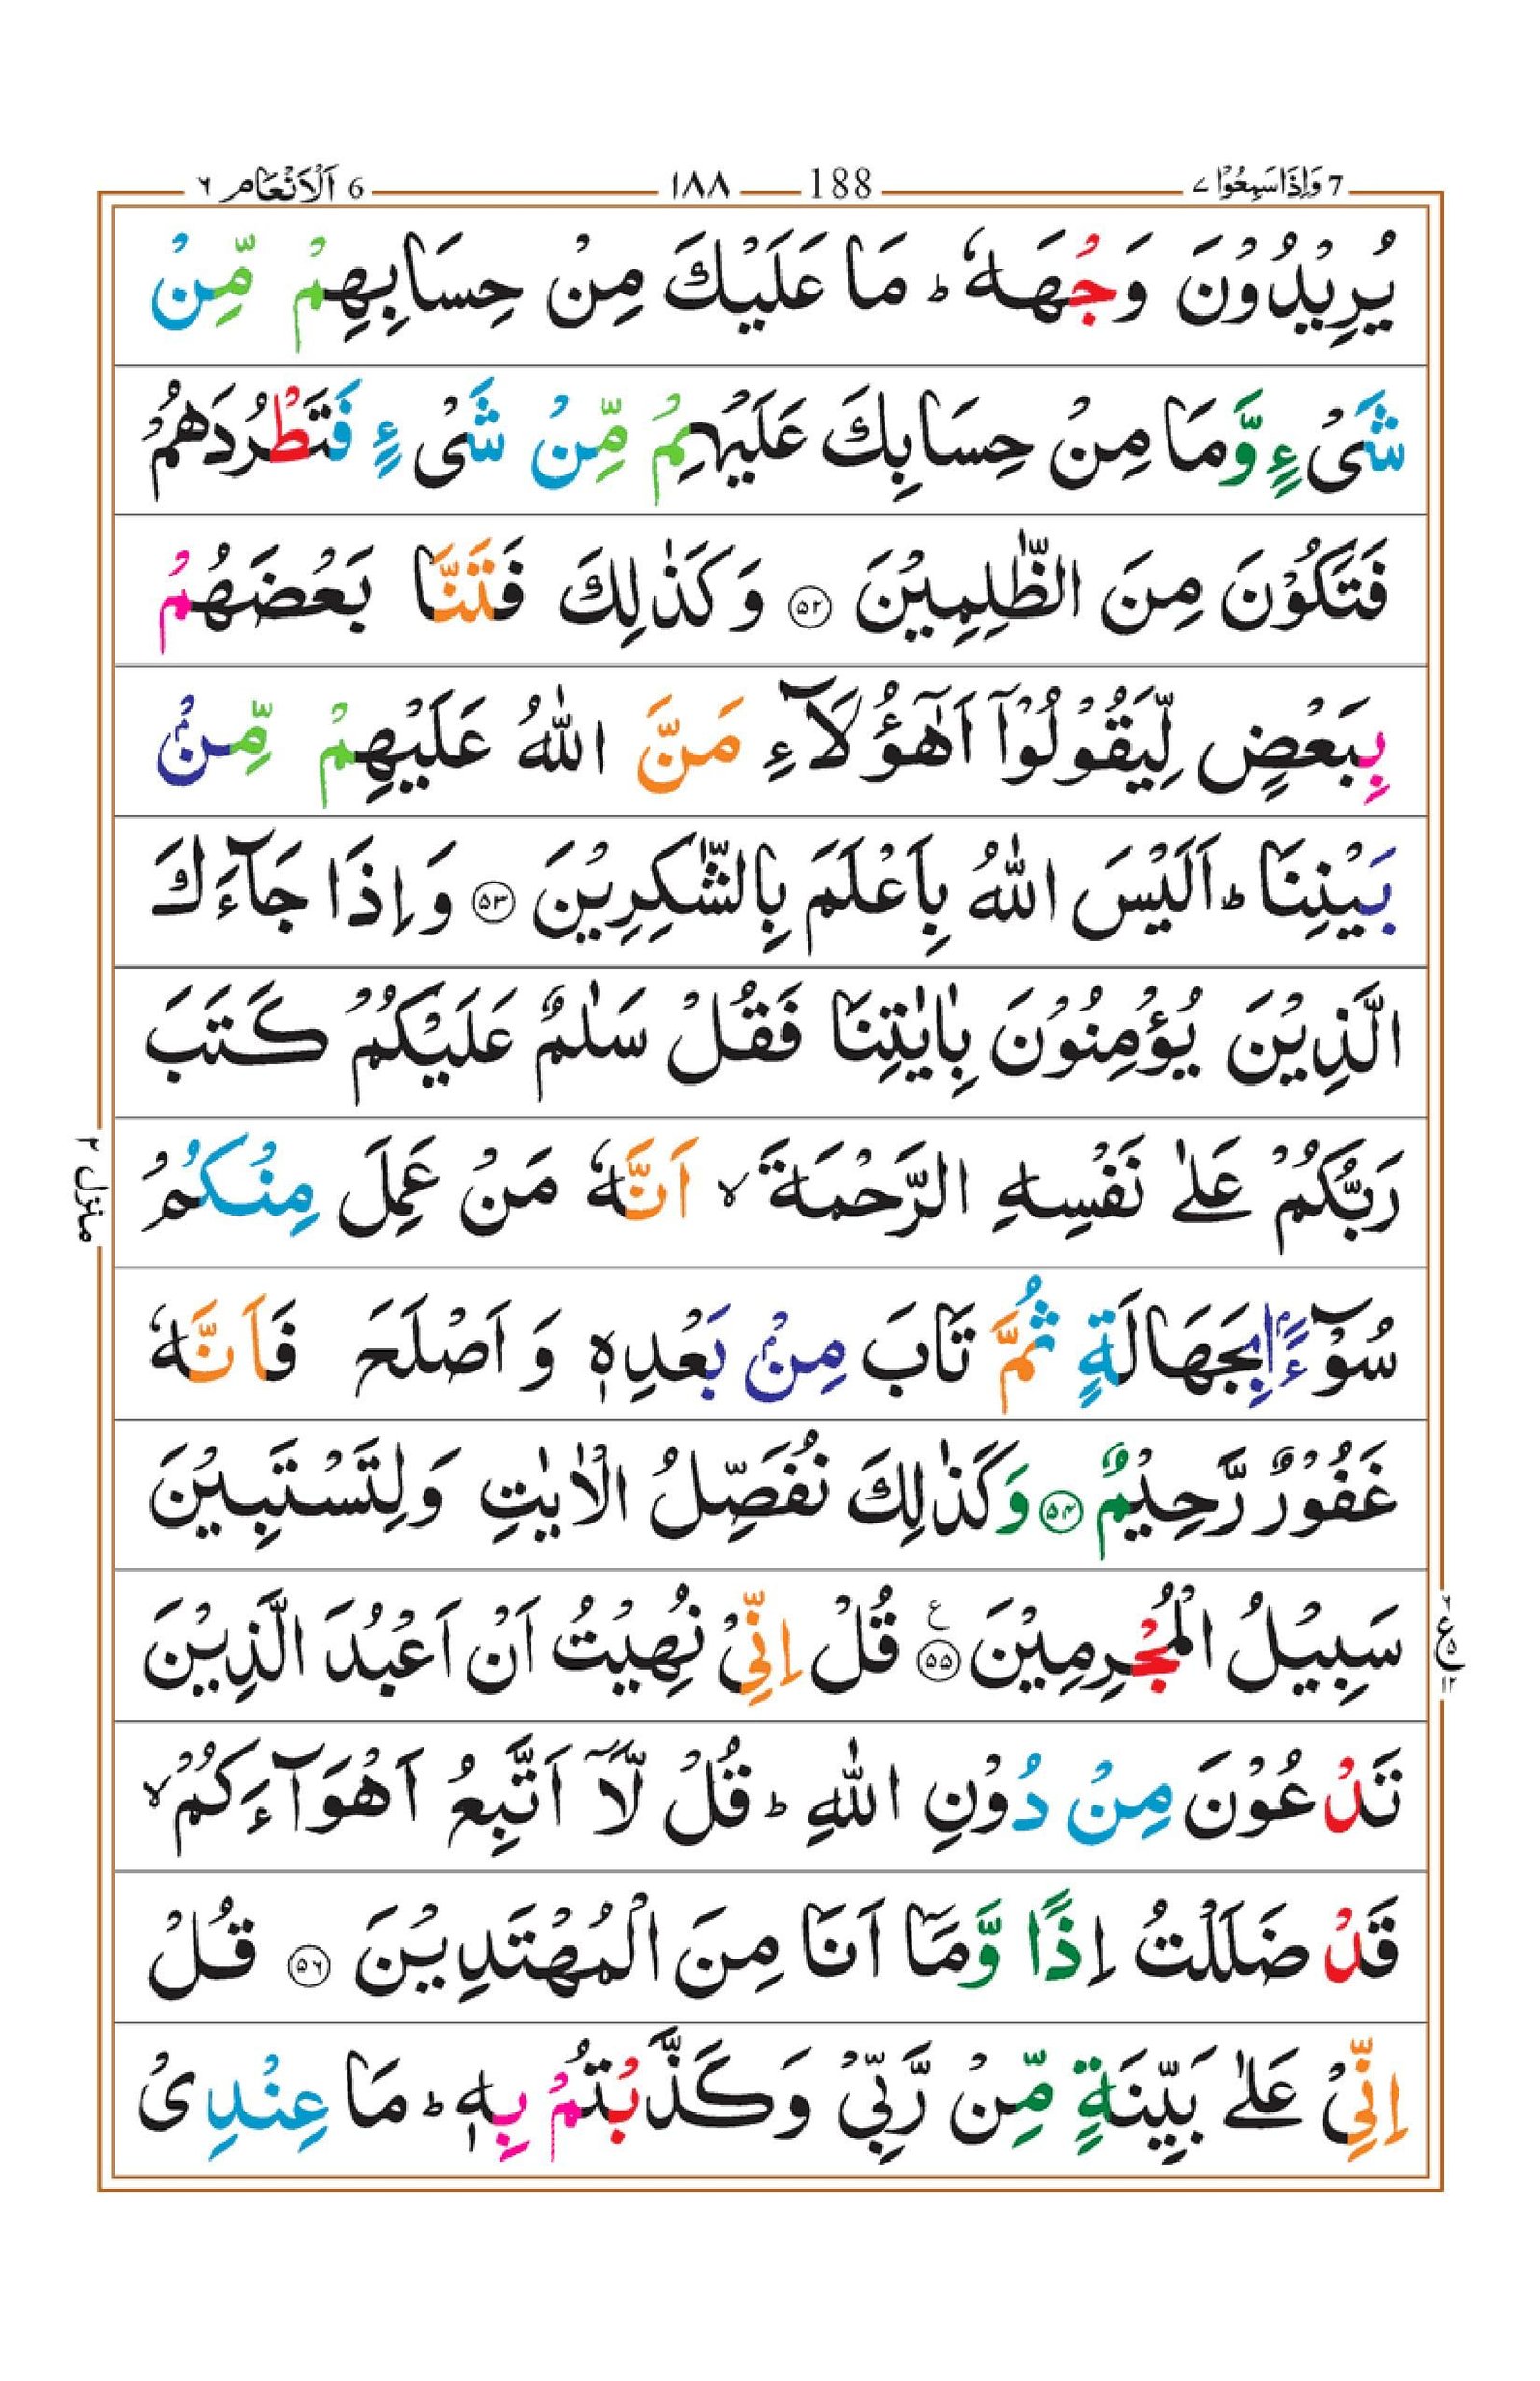 7 وَاِذَا سَمِعُوْا ٧ 188 ١٨٨ 6 اَلْاَنْعَام ٦
يُرِيْدُوْنَ وَجْهَهٗ ؕ مَا عَلَيْكَ مِنْ حِسَابِهِمْ مِّنْ
شَىْءٍ وَّمَا مِنْ حِسَابِكَ عَلَيْهِمْ مِّنْ شَىْءٍ فَتَطْرُدَهُمْ
فَتَكُوْنَ مِنَ الظّٰلِمِيْنَ ۝۵۲ وَكَذٰلِكَ فَتَنَّا بَعْضَهُمْ
بِبَعْضٍ لِّيَقُوْلُوْۤا اَهٰۤؤُلَآءِ مَنَّ اللّٰهُ عَلَيْهِمْ مِّنْۢ
بَيْنِنَا ؕ اَلَيْسَ اللّٰهُ بِاَعْلَمَ بِالشّٰكِرِيْنَ ۝۵۳ وَاِذَا جَآءَكَ
الَّذِيْنَ يُؤْمِنُوْنَ بِاٰيٰتِنَا فَقُلْ سَلٰمٌ عَلَيْكُمْ كَتَبَ
رَبُّكُمْ عَلٰى نَفْسِهِ الرَّحْمَةَ ۙ اَنَّهٗ مَنْ عَمِلَ مِنْكُمْ
سُوْٓءًۢا بِجَهَالَةٍ ثُمَّ تَابَ مِنْۢ بَعْدِهٖ وَاَصْلَحَ فَاَنَّهٗ
غَفُوْرٌ رَّحِيْمٌ ۝۵۴ وَكَذٰلِكَ نُفَصِّلُ الْاٰيٰتِ وَلِتَسْتَبِيْنَ
سَبِيْلُ الْمُجْرِمِيْنَ ۝۵۵ ع قُلْ اِنِّىْ نُهِيْتُ اَنْ اَعْبُدَ الَّذِيْنَ
تَدْعُوْنَ مِنْ دُوْنِ اللّٰهِ ؕ قُلْ لَّاۤ اَتَّبِعُ اَهْوَآءَكُمْ ۙ
قَدْ ضَلَلْتُ اِذًا وَّمَاۤ اَنَا مِنَ الْمُهْتَدِيْنَ ۝۵۶ قُلْ
اِنِّىْ عَلٰى بَيِّنَةٍ مِّنْ رَّبِّىْ وَكَذَّبْتُمْ بِهٖ ؕ مَا عِنْدِىْ
منزل ٢